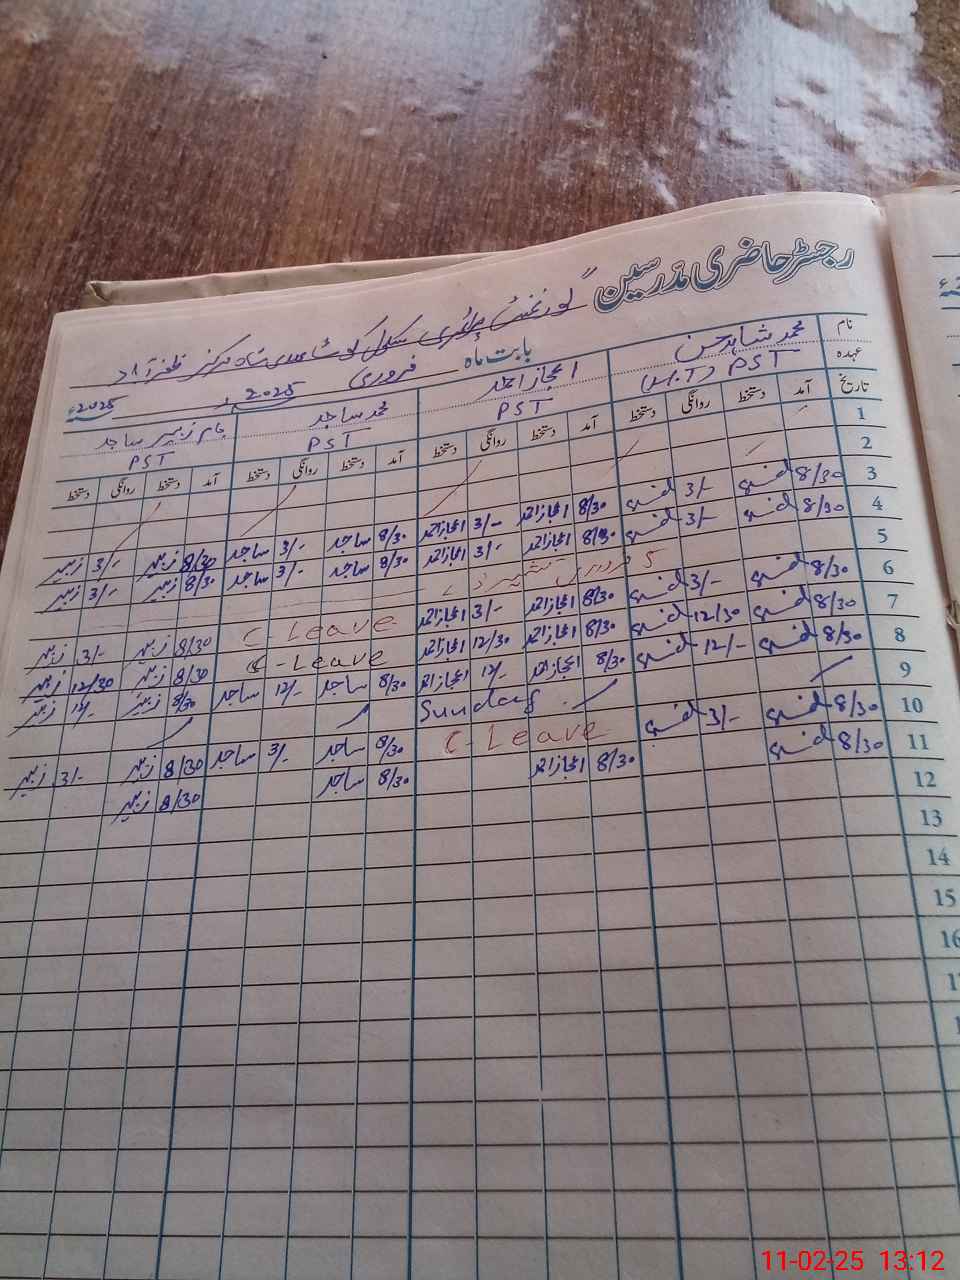 رجسٹر حاضری مدرسین
گورنمنٹ پرائمری سکول مرکز ظفر آباد
بابت ماہ فروری 2025ء 2025ء
نام محمد شاہد حسن اعجاز احمد محمد ساجد جام زبیر ساجد
عہدہ PST PST PST PST
تاریخ آمد دستخط روانگی دستخط آمد دستخط روانگی دستخط آمد دستخط روانگی دستخط آمد دستخط روانگی دستخط
1
2
3 8/30 3/- 8/30 اعجاز احمد 3/- اعجاز احمد 8/30 ساجد 3/- ساجد 8/30 زبیر 3/- زبیر
4 8/30 3/- 8/30 اعجاز احمد 3/- اعجاز احمد 8/30 ساجد 3/- ساجد 8/30 زبیر 3/- زبیر
5 5 فروری
6 8/30 3/- 8/30 اعجاز احمد 3/- اعجاز احمد C-Leave 8/30 زبیر 3/- زبیر
7 8/30 12/30 8/30 اعجاز احمد 12/30 اعجاز احمد C-Leave 8/30 زبیر 12/30 زبیر
8 8/30 12/- 8/30 اعجاز احمد 12/- اعجاز احمد 8/30 ساجد 12/- ساجد 8/30 زبیر 12/- زبیر
9 Sunday
10 8/30 3/- C-Leave 8/30 ساجد 3/- ساجد 8/30 زبیر 3/- زبیر
11 8/30 8/30 اعجاز احمد 8/30 ساجد 8/30 زبیر
12
13
14
15
16
11-02-25 13:12